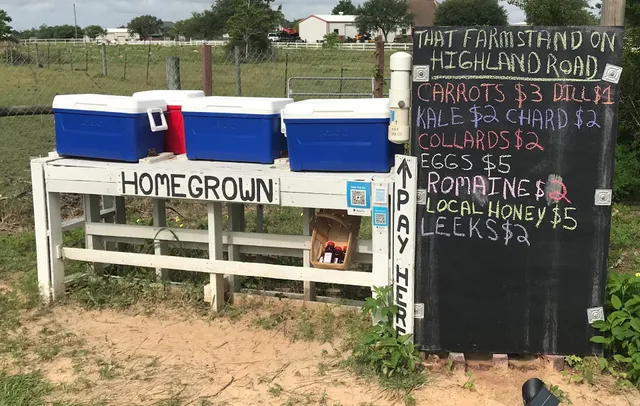 THAT FARMSTAND ON
HIGHLAND ROAD
CARROTS $3 DILL $1
KALE $2 CHARD $2
COLLARDS $2
EGGS $5
ROMAINE $2
LOCAL HONEY $5
LEEKS $2
HOMEGROWN
PAY HERE